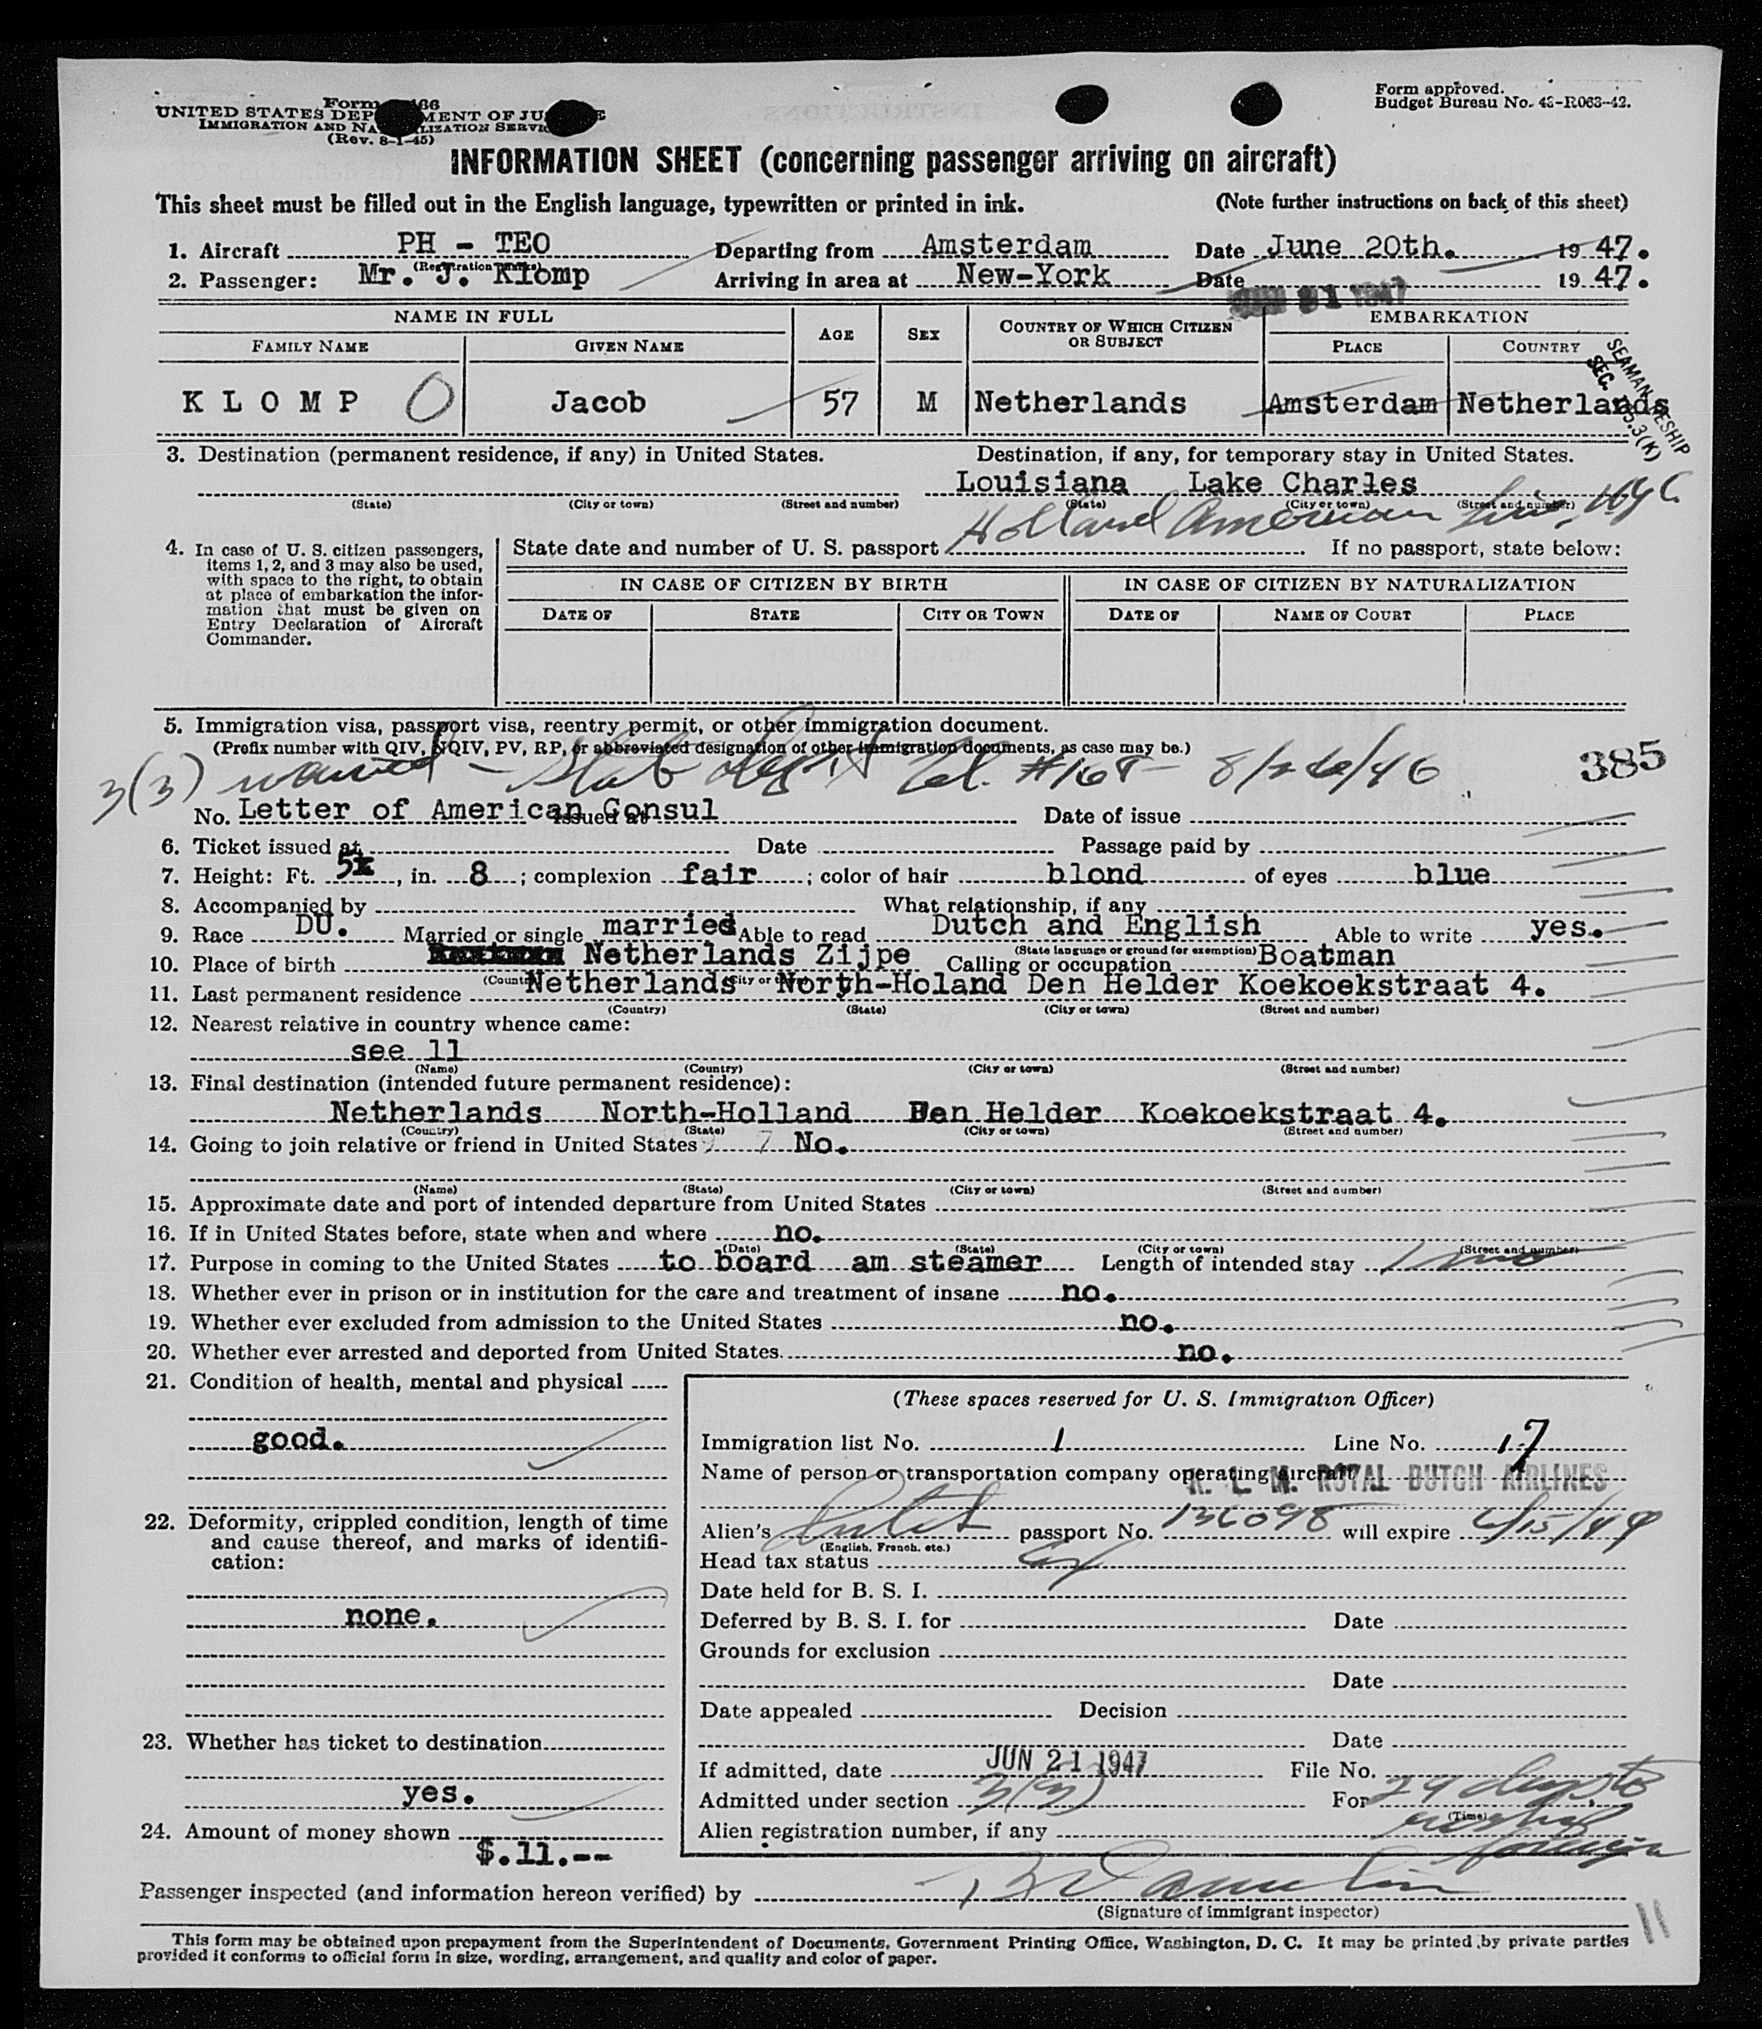 Form approved.
Budget Bureau No. 43-R063-42.
Form
UNITED STATES DEP MENT OF JU E
IMMIGRATION AND NA LIZATION SERVIC
(Rev. 8-1-45)
INFORMATION SHEET (concerning passenger arriving on aircraft)
This sheet must be filled out in the English language, typewritten or printed in ink. (Note further instructions on back of this sheet)
1. Aircraft PH - TEO Departing from Amsterdam Date June 20th. 1947.
(Registration marks)
2. Passenger: Mr. J. Klomp Arriving in area at New-York Date 21 1947 1947.
NAME IN FULL AGE SEX COUNTRY OF WHICH CITIZEN OR SUBJECT EMBARKATION
FAMILY NAME GIVEN NAME PLACE COUNTRY
KLOMP O Jacob 57 M Netherlands Amsterdam Netherlands
SEAMAN RESHIP
SEC. 3(K)
3. Destination (permanent residence, if any) in United States. Destination, if any, for temporary stay in United States.
Louisiana Lake Charles
(State) (City or town) (Street and number) (State) (City or town) (Street and number)
Holland American Line, NYC
4. In case of U. S. citizen passengers, items 1, 2, and 3 may also be used, with space to the right, to obtain at place of embarkation the information that must be given on Entry Declaration of Aircraft Commander.
State date and number of U. S. passport If no passport, state below:
IN CASE OF CITIZEN BY BIRTH IN CASE OF CITIZEN BY NATURALIZATION
DATE OF STATE CITY OR TOWN DATE OF NAME OF COURT PLACE
5. Immigration visa, passport visa, reentry permit, or other immigration document.
(Prefix number with QIV, NQIV, PV, RP, or abbreviated designation of other immigration documents, as case may be.)
3(3) waived - State Dept Tel. #168 - 8/26/46 385
No. Letter of American Consul Issued at Date of issue
6. Ticket issued at Date Passage paid by
7. Height: Ft. 5x, in. 8; complexion fair; color of hair blond of eyes blue
8. Accompanied by What relationship, if any
9. Race DU. Married or single married Able to read Dutch and English Able to write yes.
(State language or ground for exemption)
10. Place of birth Netherlands Zijpe Calling or occupation Boatman
(Country) (City or town)
11. Last permanent residence Netherlands North-Holand Den Helder Koekoekstraat 4.
(Country) (State) (City or town) (Street and number)
12. Nearest relative in country whence came:
see 11
(Name) (Country) (City or town) (Street and number)
13. Final destination (intended future permanent residence):
Netherlands North-Holland Den Helder Koekoekstraat 4.
(Country) (State) (City or town) (Street and number)
14. Going to join relative or friend in United States No.
(Name) (State) (City or town) (Street and number)
15. Approximate date and port of intended departure from United States
16. If in United States before, state when and where no.
(Date) (State) (City or town) (Street and number)
17. Purpose in coming to the United States to board am steamer Length of intended stay 1 mo
18. Whether ever in prison or in institution for the care and treatment of insane no.
19. Whether ever excluded from admission to the United States no.
20. Whether ever arrested and deported from United States. no.
21. Condition of health, mental and physical
good.
22. Deformity, crippled condition, length of time and cause thereof, and marks of identification:
none.
23. Whether has ticket to destination
yes.
24. Amount of money shown
$.11.--
(These spaces reserved for U. S. Immigration Officer)
Immigration list No. 1 Line No. 17
Name of person or transportation company operating aircraft K. L. M. ROYAL DUTCH AIRLINES
Alien's Dutch passport No. 136098 will expire
(English, French, etc.)
Head tax status
Date held for B. S. I.
Deferred by B. S. I. for Date
Grounds for exclusion
Date
Date appealed Decision
Date
If admitted, date JUN 21 1947 File No.
Admitted under section 3(3) For 29 days to
(Time)
reship
foreign
Alien registration number, if any
Passenger inspected (and information hereon verified) by
(Signature of immigrant inspector)
11
This form may be obtained upon prepayment from the Superintendent of Documents, Government Printing Office, Washington, D. C. It may be printed by private parties
provided it conforms to official form in size, wording, arrangement, and quality and color of paper.